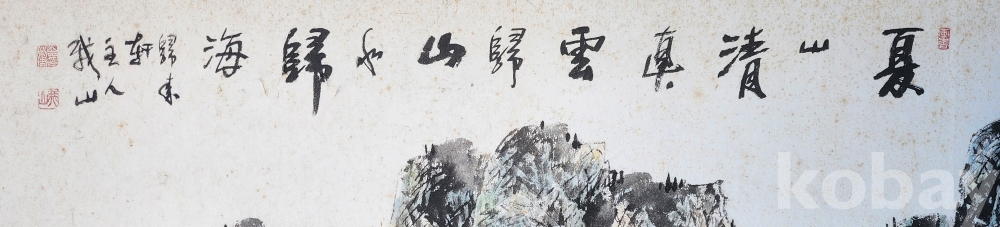 夏山清真雲歸山水歸海
歸來
軒
主人
義山
kobay